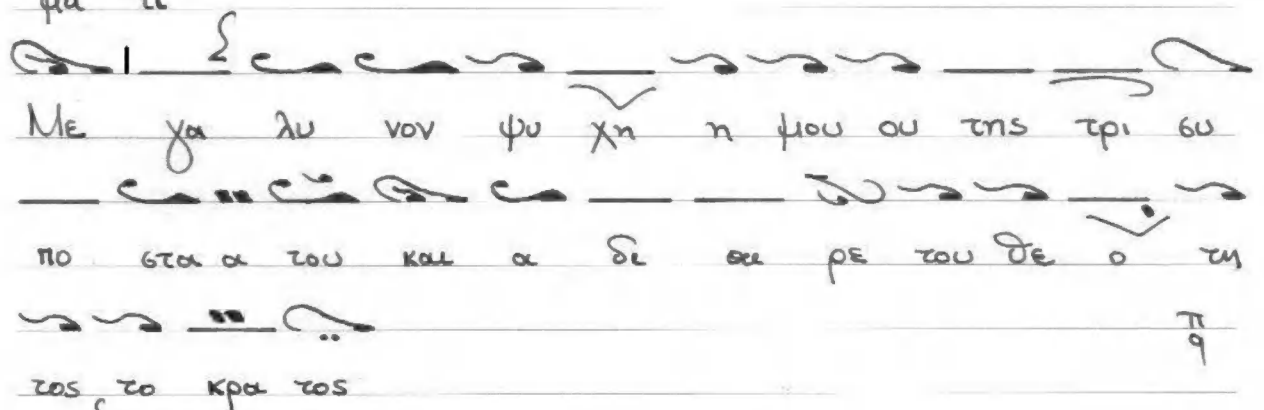 μα τι
Με γα λυ νον ψυ χη η μου ου της τρι συ
πο στα α του και α δι αι ρε του θε ο τη
π
q
τος το κρα τος